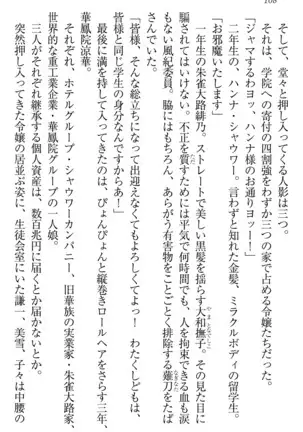 108
そして、堂々と押し入ってくる人影は三つ。
それは、学院への寄付の四割強をわずか三つの家で占める令嬢たちだった。
「ジャマするわヨッ、ハンナ様のお通りヨッー!」
二年生の、ハンナ・シャウワー。言わずと知れた金髪、ミラクルボディの留学生。
「お邪魔いたします」
一年生の朱雀大路緋乃。ストレートで美しい黒髪が揺らぐ大和撫子。その見た目に
騙されてはいけない。不正を質すためには平気で何時間でも、人を拘束できる血も涙
もない風紀委員。脇にはもちろん、あらがう有害物をことごとく排除する薙刀をたば
さんでいた。
「皆様、そんな総立ちになって出迎えなくてもよろしくてよ! わたくしどもは、
皆様と同じ学生の身分なんですからあ!」
最後に満を持して入ってきたのは、ぴょんぴょんと縦巻きロールヘアをさらす三年、
華鳳院涼華。
それぞれ、ホテルグループ・シャウワーカンパニー、旧華族の実業家・朱雀大路家、
世界的な重工業企業・華鳳院グループの一人娘。
三人がそれぞれ継承する個人資産は、数百兆円に届くとか届かないとか。
突然押し入ってきた令嬢の居並ぶ姿に、生徒会室にいた謙一、美雪、子々は中腰の